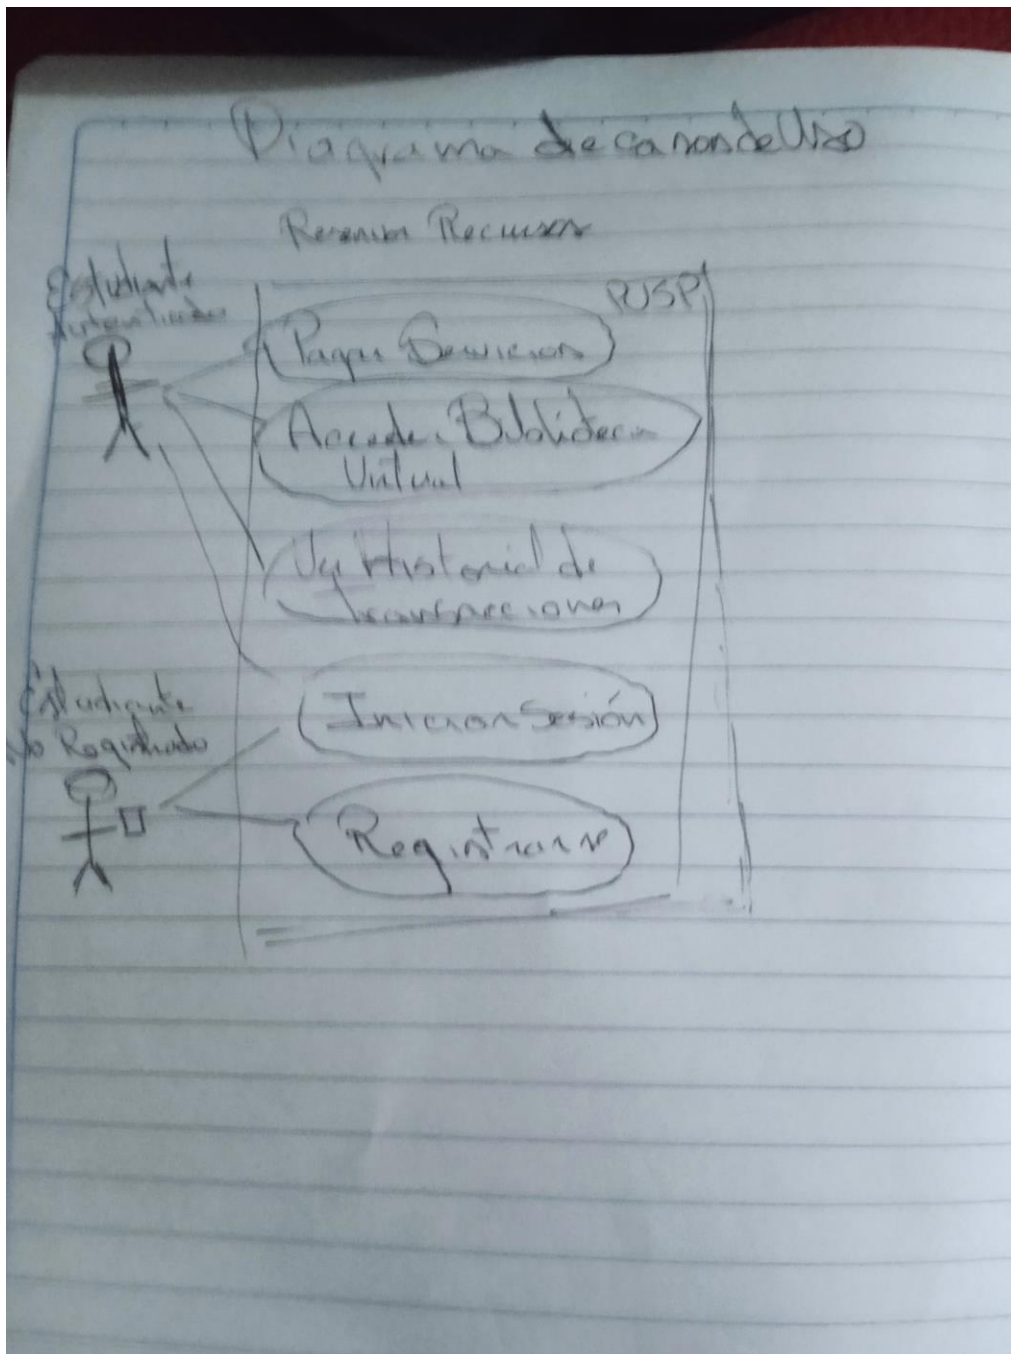 Diagrama de casos de Uso
Reservar Recursos
Estudiante
Autenticado
PUSP
Pagar Servicios
Acceder Biblioteca
Virtual
Ver Historial de
transacciones
Estudiante
No Registrado
Iniciar Sesión
Registrarse